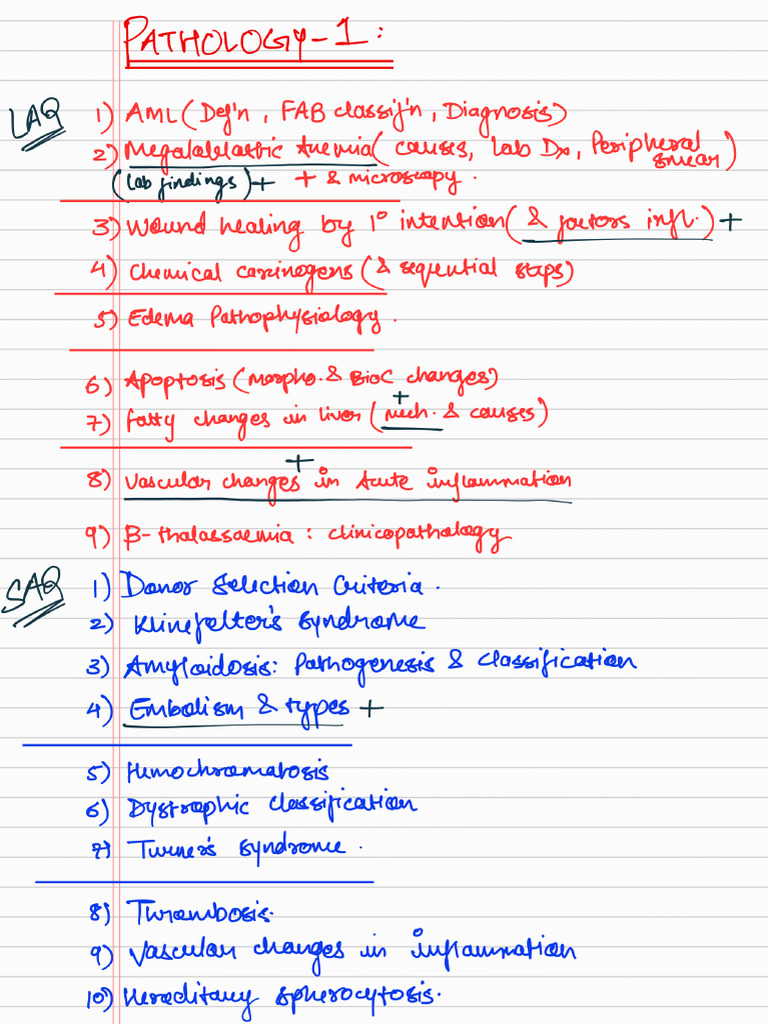 PATHOLOGY-1:
LAQ
1) AML (Def'n, FAB classif'n, Diagnosis)
2) Megalablastic Anemia (causes, Lab Dx, Peripheral smear)
(lab findings) + + & microscopy.
3) Wound healing by 1° intention (& factors infl.) +
4) Chemical carcinogens (& seqential steps)
5) Edema Pathophysiology.
6) Apoptosis (morpho. & BioC changes)
+
7) Fatty changes in liver (mech. & causes)
+
8) Vascular changes in Acute inflammation
9) β-thalassaemia : clinicopathology
SAQ
1) Donor Selection Criteria.
2) Klinefelter's syndrome
3) Amyloidosis: Pathogenesis & classification
4) Embolism & types +
5) Hemochromatosis
6) Dystrophic classification
7) Turner's syndrome.
8) Thrombosis.
9) Vascular changes in inflammation
10) Hereditary spherocytosis.